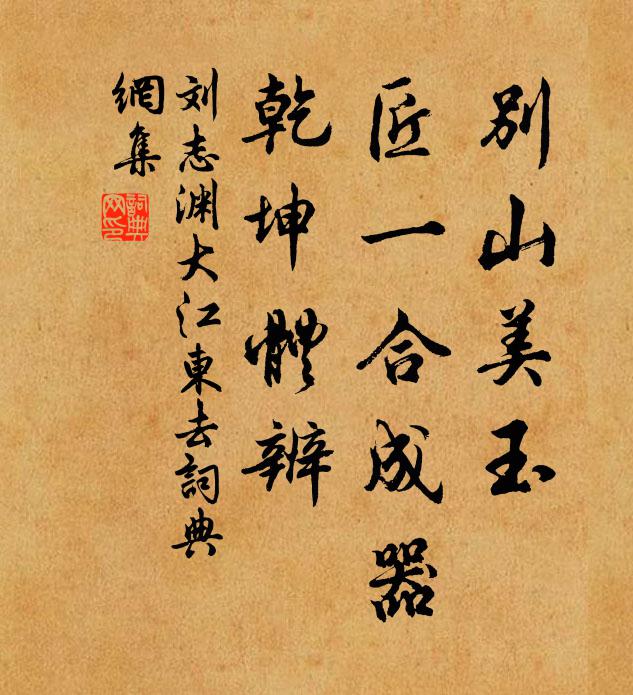 別山美玉
匠一合成器
乾坤體辨
刘志渊大江東去詞典
網集
詞典
网印